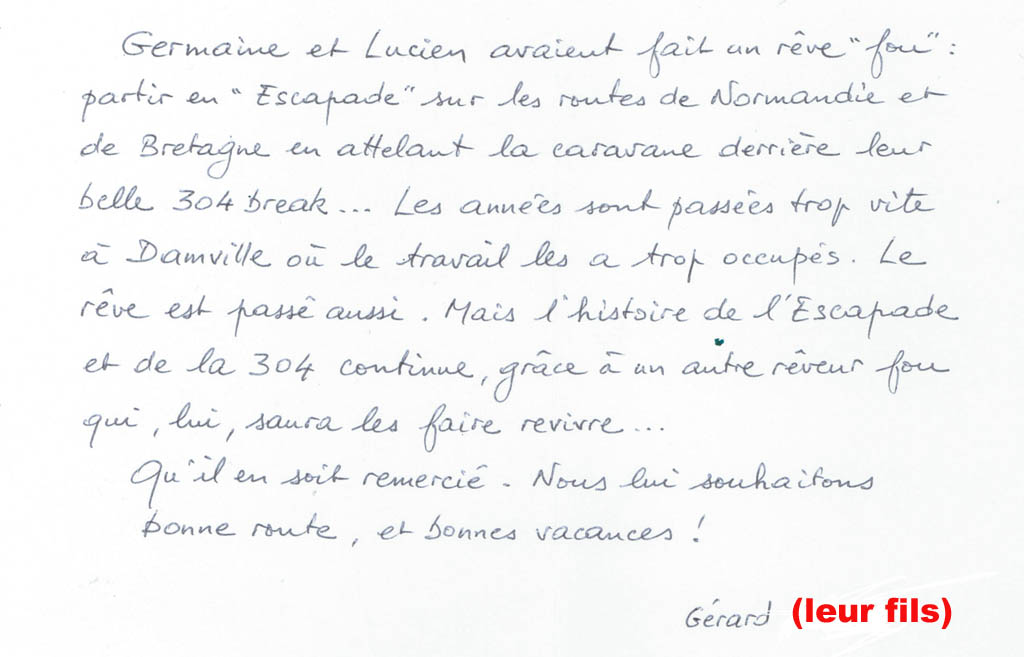 Germaine et Lucien avaient fait un rêve "fou" :
partir en "Escapade" sur les routes de Normandie et
de Bretagne en attelant la caravane derrière leur
belle 304 break... Les années sont passées trop vite
à Damville où le travail les a trop occupés. Le
rêve est passé aussi. Mais l'histoire de l'Escapade
et de la 304 continue, grâce à un autre rêveur fou
qui, lui, saura les faire revivre...
Qu'il en soit remercié. Nous lui souhaitons
bonne route, et bonnes vacances !
Gérard (leur fils)